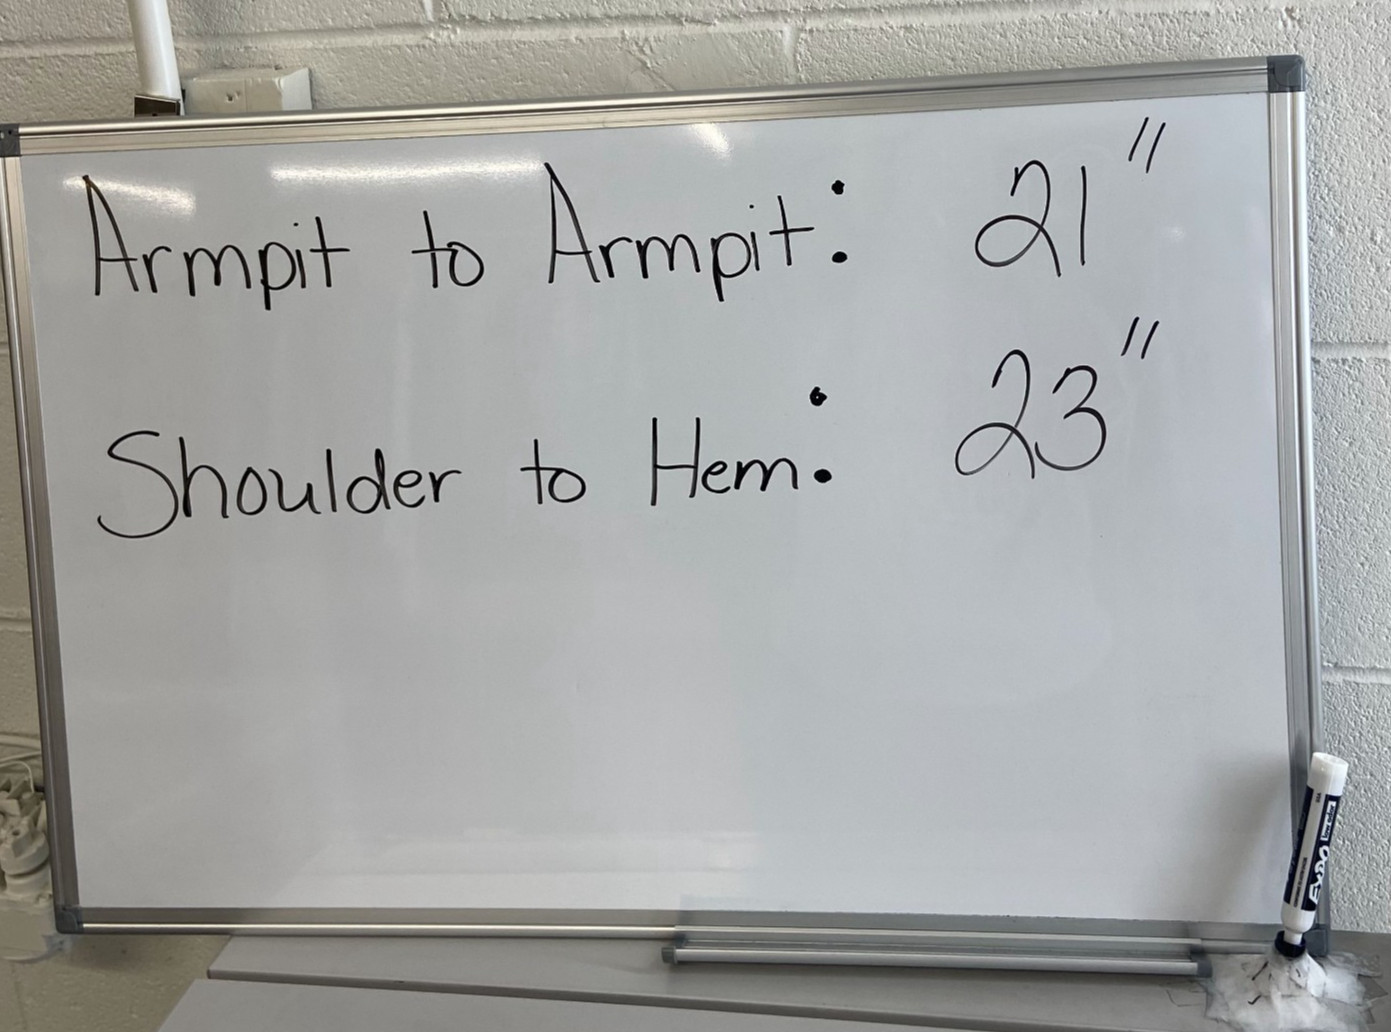 Armpit to Armpit: 21"
Shoulder to Hem: 23"
EXPO